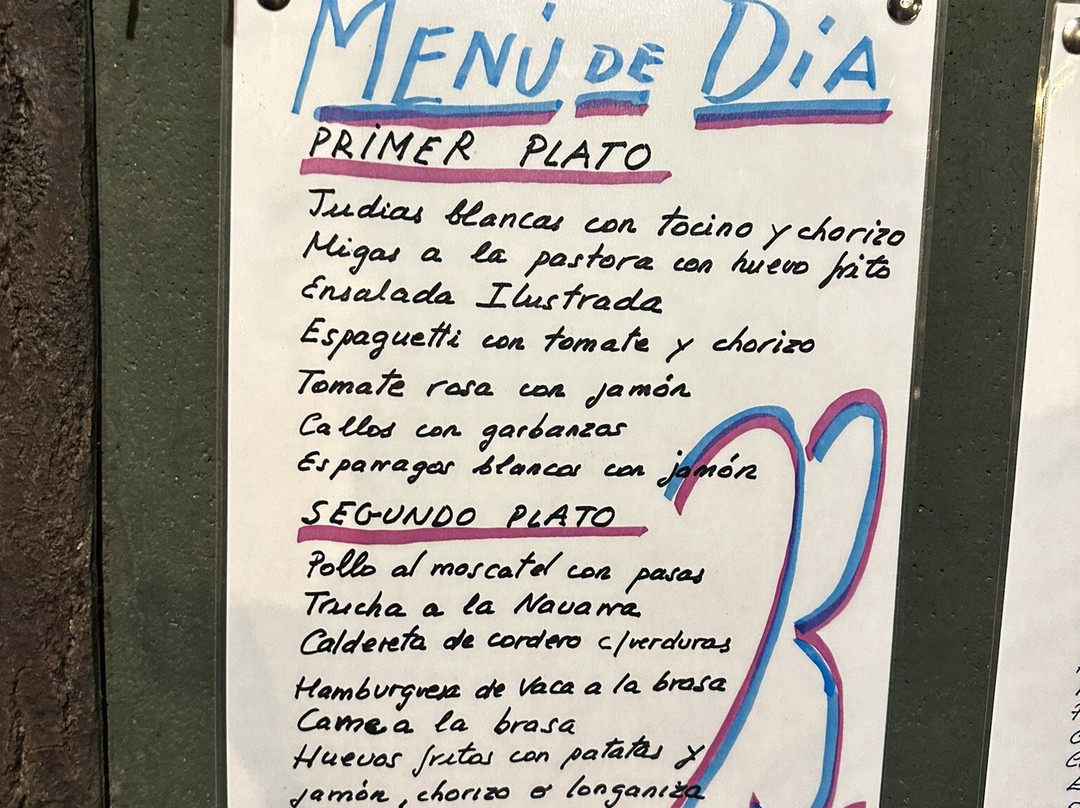 MENÚ DE DÍA
PRIMER PLATO
Judias blancas con tocino y chorizo
Migas a la pastora con huevo frito
Ensalada Ilustrada
Espaguetti con tomate y chorizo
Tomate rosa con jamón
Callos con garbanzos
Esparragos blancos con jamón
SEGUNDO PLATO
Pollo al moscatel con pasas
Trucha a la Navarra
Caldereta de cordero c/verduras
Hamburguesa de Vaca a la brasa
Carne a la brasa
Huevos fritos con patatas y
jamón, chorizo o longaniza